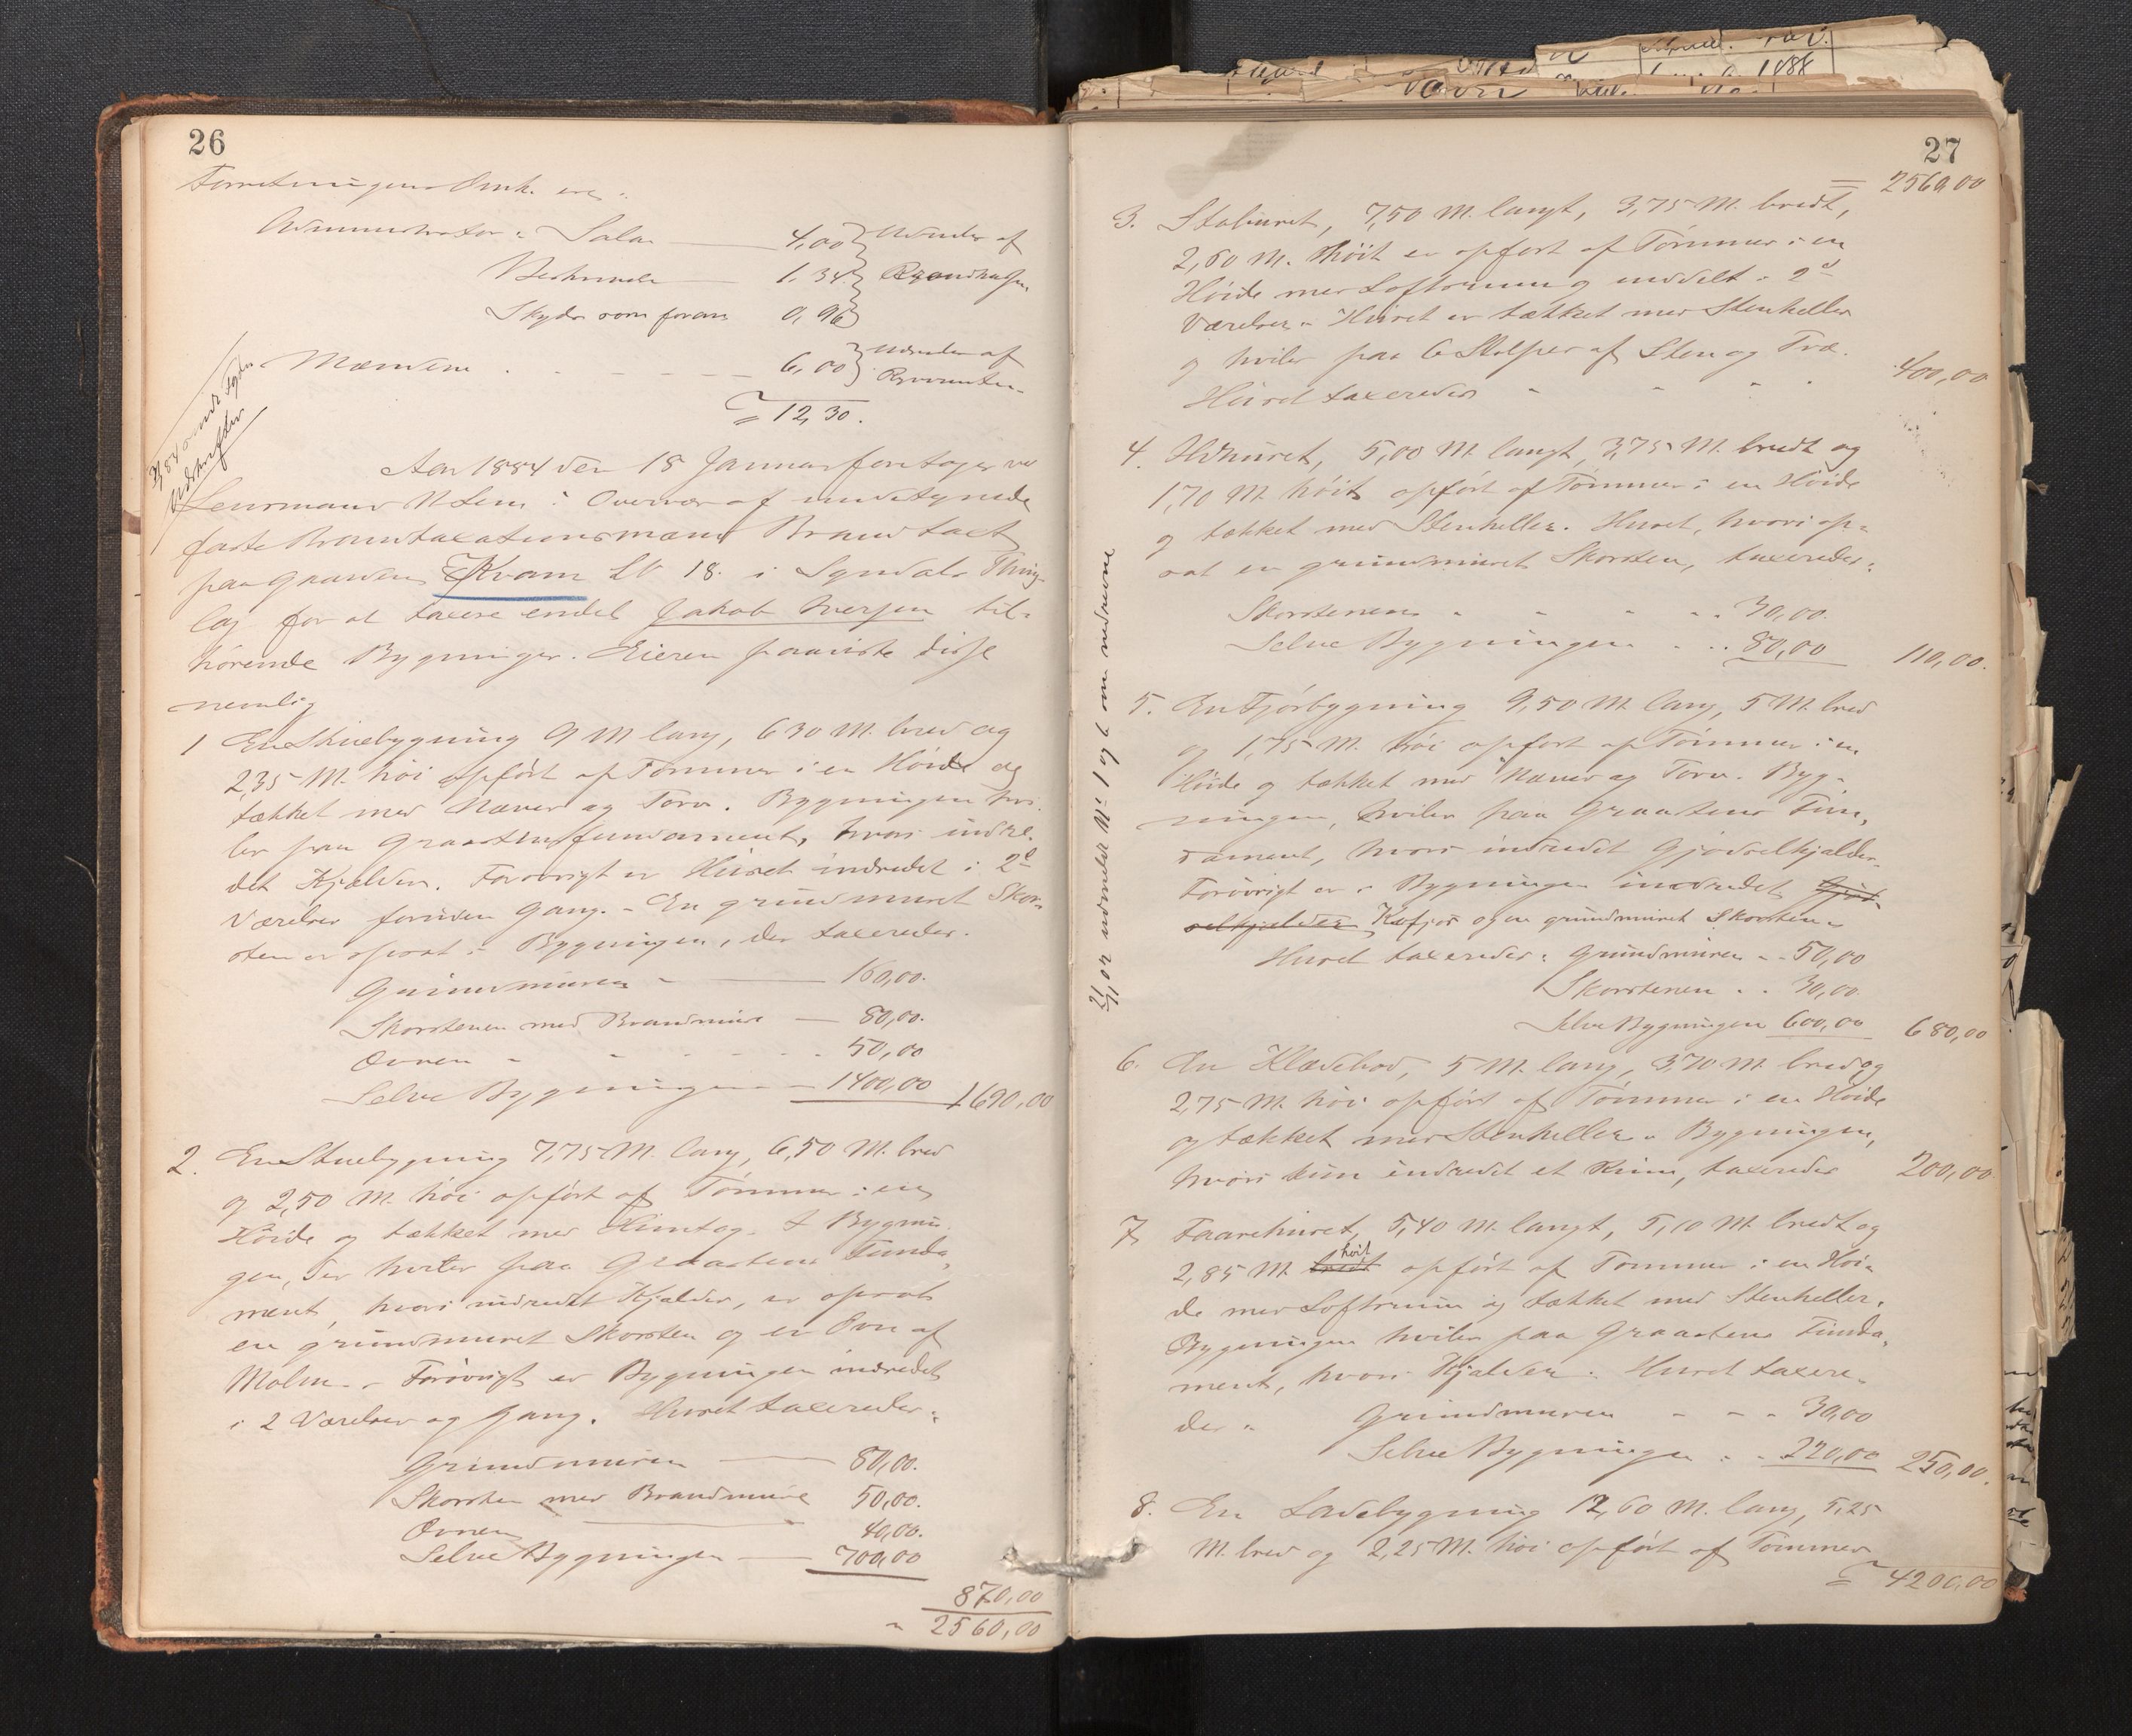 26
Forretningens Omk. ere:
Administrator: Salar 4,00 } udredes af
Beskrivelse 1,34 } Brandkassen
Skyds som foran 0,96 }
Mændene 6,00 } udredes af
12,30.
Aar 1884 den 18 Januar foretoges ved
Lensmand N Lem i Overvær af undertegnede
faste Brandtaxationsmænd Brandtaxt
paa Gaarden Kvam LN 18. i Sogndals Thing-
lag for at taxere endel Jakob Iversen til-
hørende Bygninger. Eieren paaviste disse
nemlig
1 En Stuebygning 9 M lang, 6 30 M. bred og
2,35 M. høi opført af Tømmer i en Høide og
tækket med Næver og Torv. Bygningen hvi-
ler paa Graastensfundament, hvori indre-
det Kjælder. Forøvrigt er Huset indredet i 2de
Værelser foruden Gang. - En grundmuret Skor-
sten er opsat i Bygningen, der taxeredes.
Grundmuren 160,00.
Skorstenen med Brandmure 80,00.
Ovnen 50,00
Selve Bygningen 1400,00 1690,00
2. En Stuebygning 7,75 M. lang, 6,50 M. bred
og 2,50 M. høi opført af Tømmer i en
Høide og tækket med . I Bygnin-
gen, der hviler paa Graastens Funda-
ment, hvori indredet Kjælder, er opsat
en grundmuret Skorsten og en Ovn af
Malm. - Forøvrigt er Bygningen indredet
i 2 Værelser og Gang. Huset taxeredes:
Grundmuren 80,00.
Skorsten med Brandmure 50,00.
Ovnen 40,00.
Selve Bygningen 700,00
870,00
2560,00
27
2560,00
3. Staburet, 7,50 M. langt, 3,75 M. bredt,
2,60 M. høit er opført af Tømmer i en
Høide med Loftsrum og inddelt i 2de
Værelser. Huset er tækket med Stenheller
og hviler paa 6 Stolper af Sten og Træ.
Huset taxeredes 400,00
4. Ildhuset, 5,00 M. langt, 3,75 M. bredt og
1,70 M høit opført af Tømmer i en Høide
og tækket med Stenheller. Huset, hvori op-
sat en grundmuret Skorsten, taxeredes:
Skorstenen 30,00.
Selve Bygningen 80,00 110,00.
21/ 02 udmeldt No 1 og 6 som nedrevne
5. En Fjøsbygning 9,50 M. lang, 5 M. bred
og 1,75 M. høi opført af Tømmer i en
Høide og tækket med Næver og Torv. Byg-
ningen, hviler paa Graastens Fun-
dament, hvori indredet Gjødselkjælder.
Forøvrigt er i Bygningen indredet Gjød-
selkjælder Kufjøs og en grundmuret Skorsten.
Huset taxeredes: Grundmuren 50,00
Skorstenen 30,00.
Selve Bygningen 600,00 680,00
6. En Klædebod, 5 M. lang, 3,70 M. bred og
2,75 M. høi opført af Tømmer i en Høide
og tækket med Stenheller. Bygningen,
hvori kun indredet et Rum, taxeredes 200,00
7. Faarehuset, 5,40 M. langt, 5,10 M. bredt og
2,85 M bredt høit opført af Tømmer i en Høi-
de med Loftsrum og tækket med Stenheller.
Bygningen hviler paa Graastens Funda-
ment, hvori Kjælder. Huset taxere-
des: Grundmuren 30,00
Selve Bygningen 220,00 250,00.
8. En Ladebygning 12,60 M. lang, 5,25
M. bred og 2,25 M. høi opført af Tømmer
4200,00